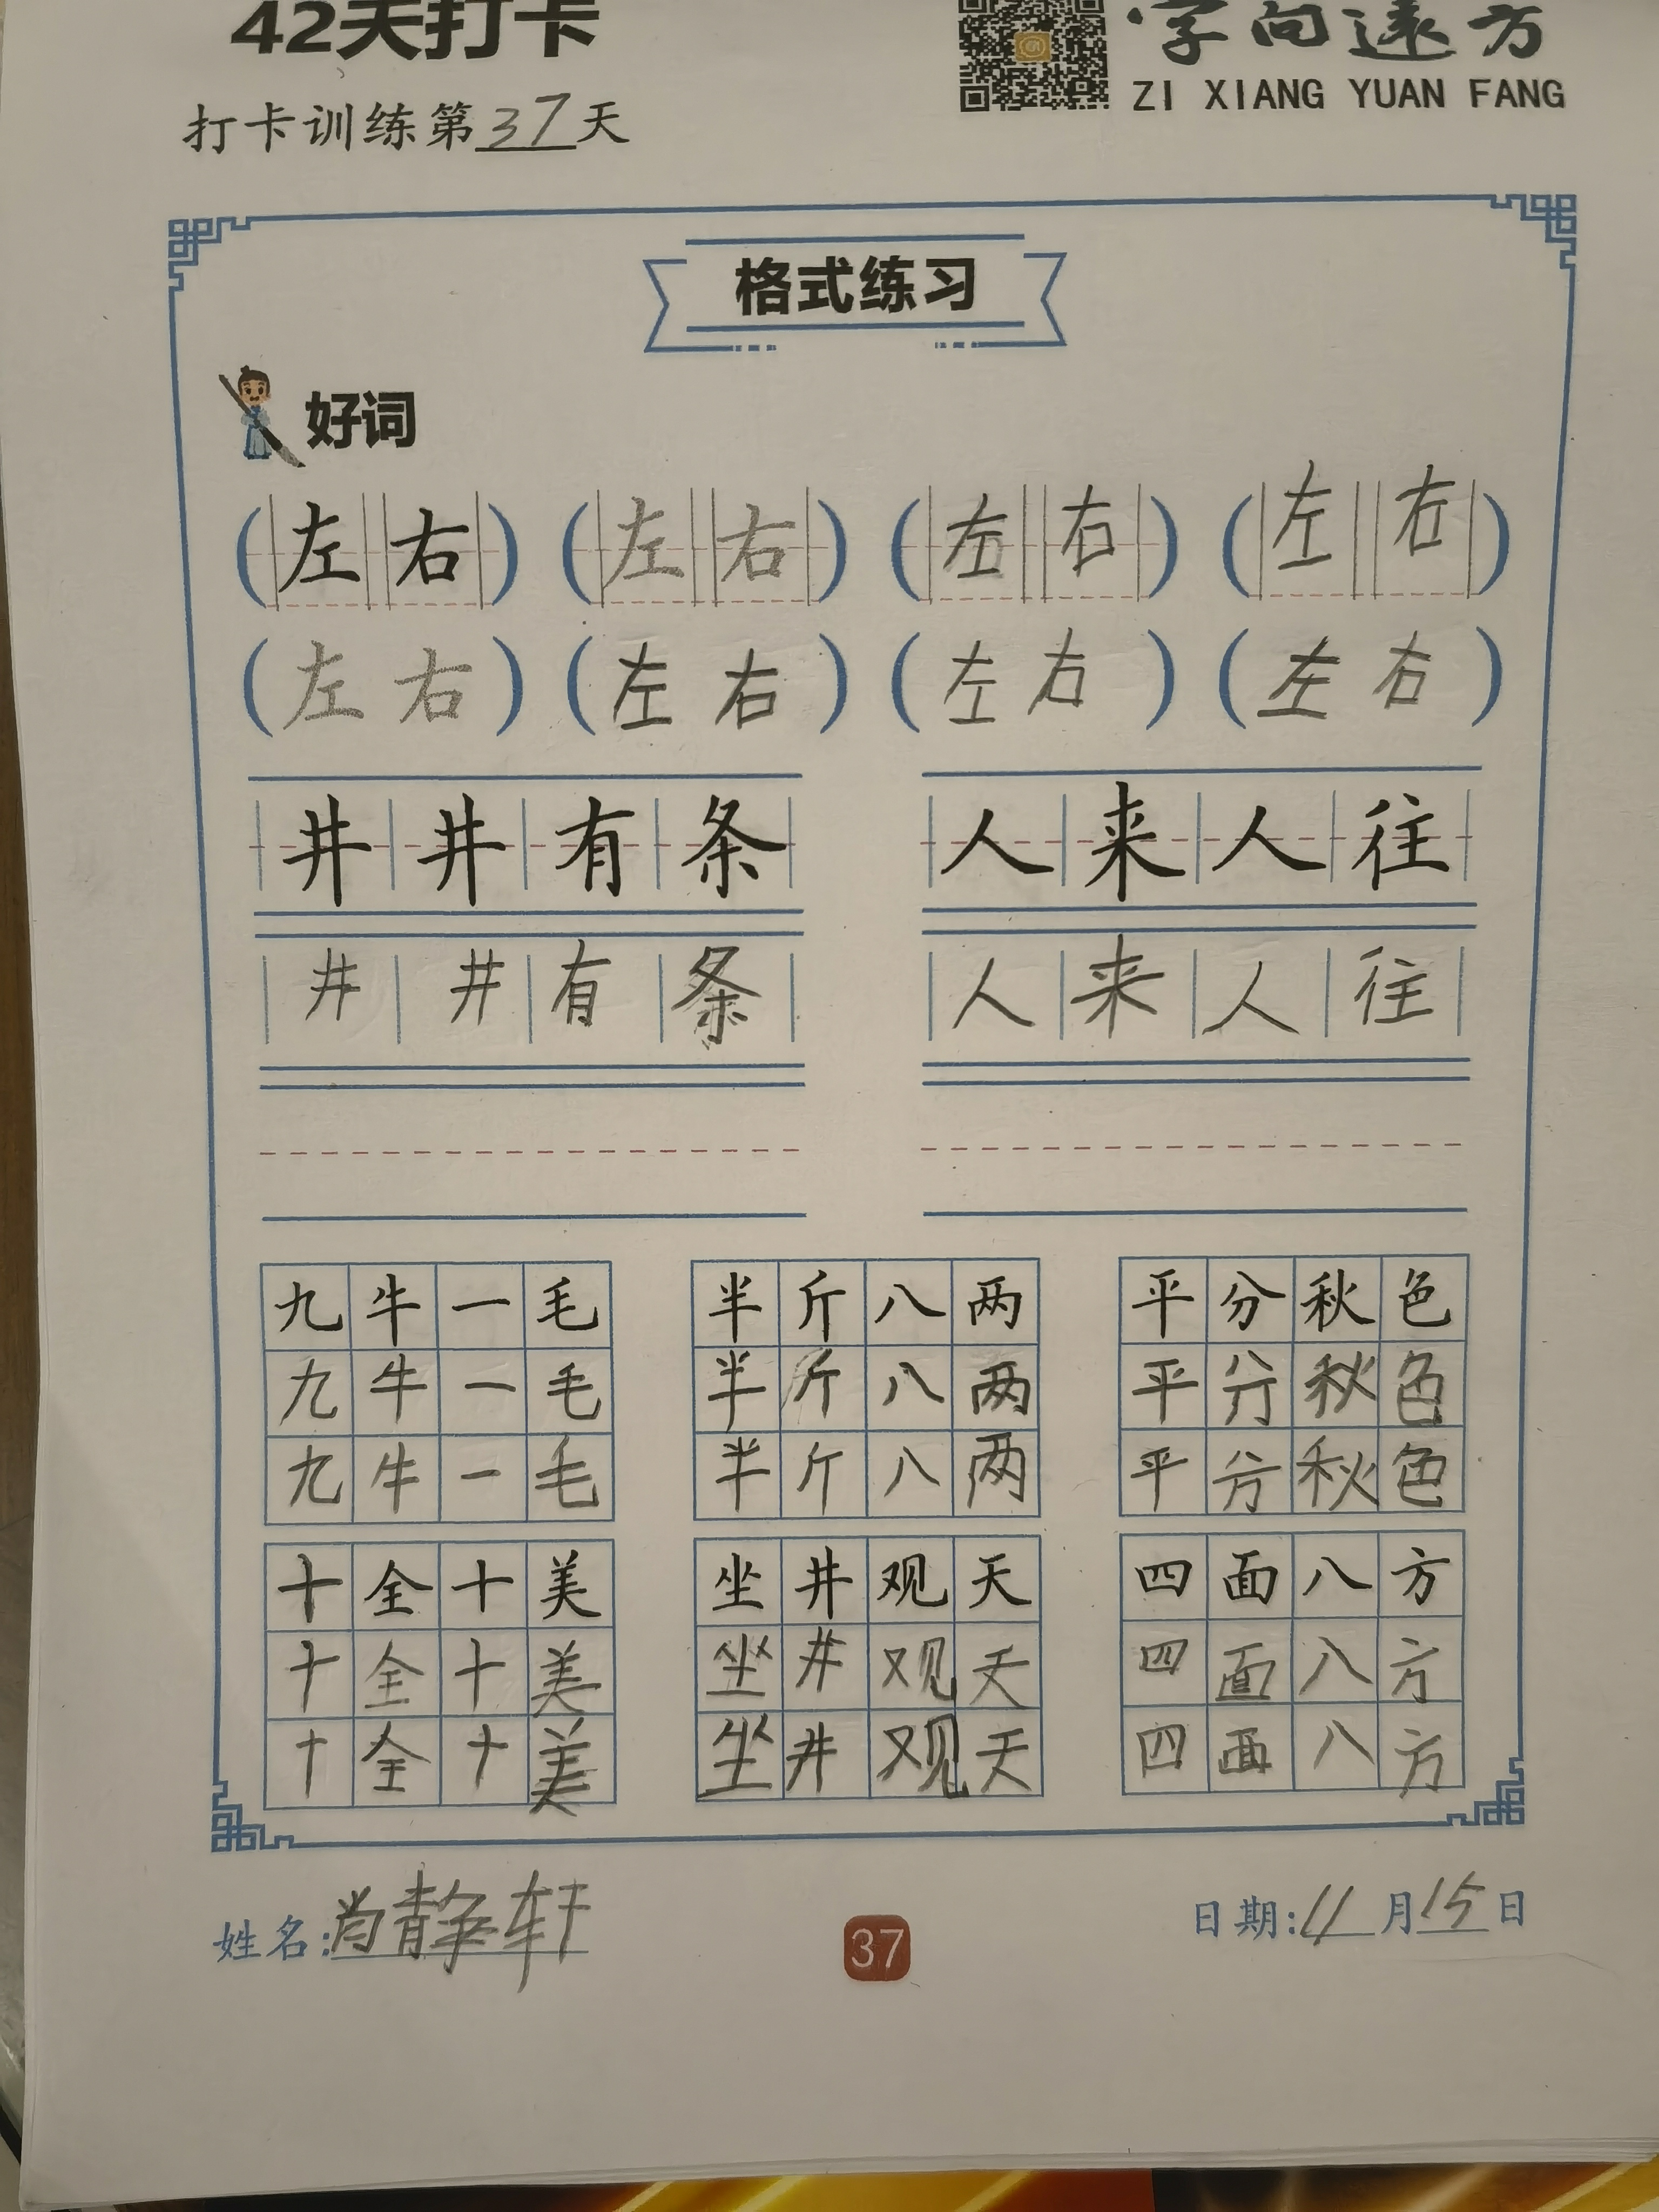 42天打卡
字向远方
ZI XIANG YUAN FANG
打卡训练第37天
格式练习
好词
(左右) (左右) (左右) (左右)
(左右) (左右) (左右) (左右)
井井有条 人来人往
井井有条 人来人往
九牛一毛 半斤八两 平分秋色
九牛一毛 半斤八两 平分秋色
九牛一毛 半斤八两 平分秋色
十全十美 坐井观天 四面八方
十全十美 坐井观天 四面八方
十全十美 坐井观天 四面八方
姓名:尚静轩
37
日期:11月15日